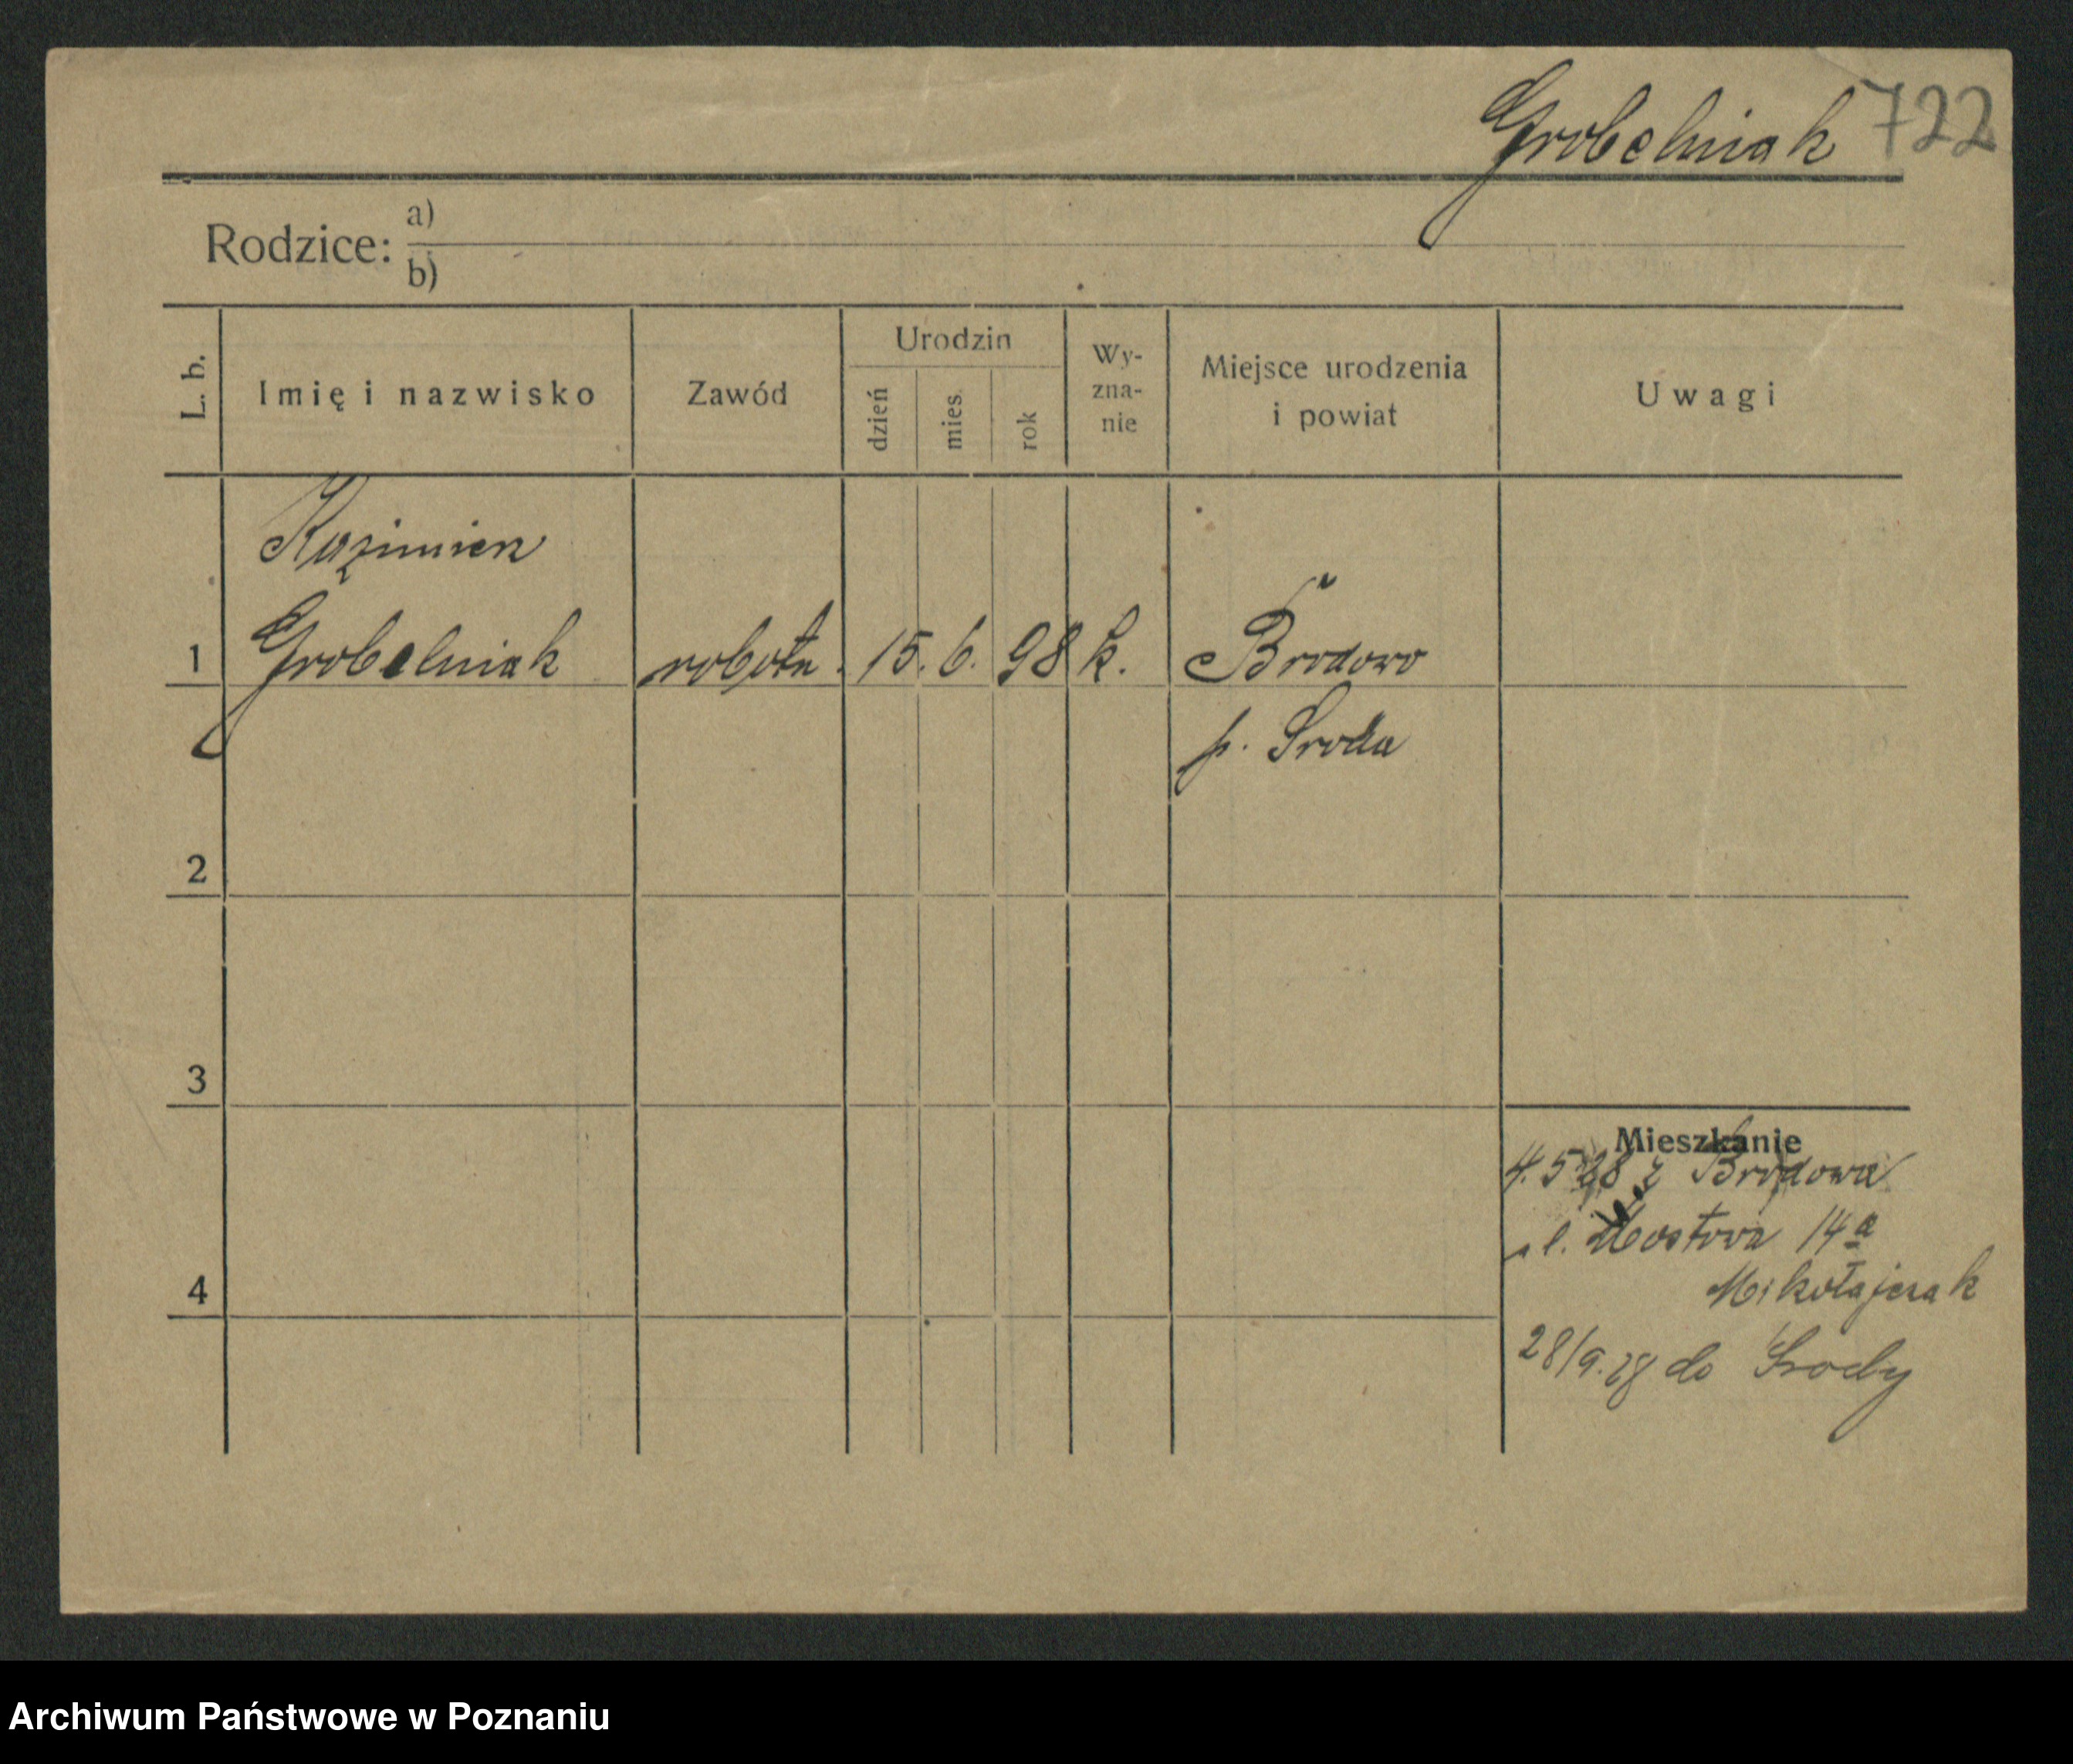 Grobelniak 722
Rodzice: a)
b)
L. b. Imię i nazwisko Zawód Urodzin dzień mies. rok Wy-zna-nie Miejsce urodzenia i powiat Uwagi
Kazimierz
1 Grobelniak robotn. 15. 6. 98 k. Brodowo
p. Środa
2
3
Mieszkanie
4. 5 28 z Brodowa
ul. Mostowa 14a
4 Mikołajczak
28/9. 28 do Środy
Archiwum Państwowe w Poznaniu